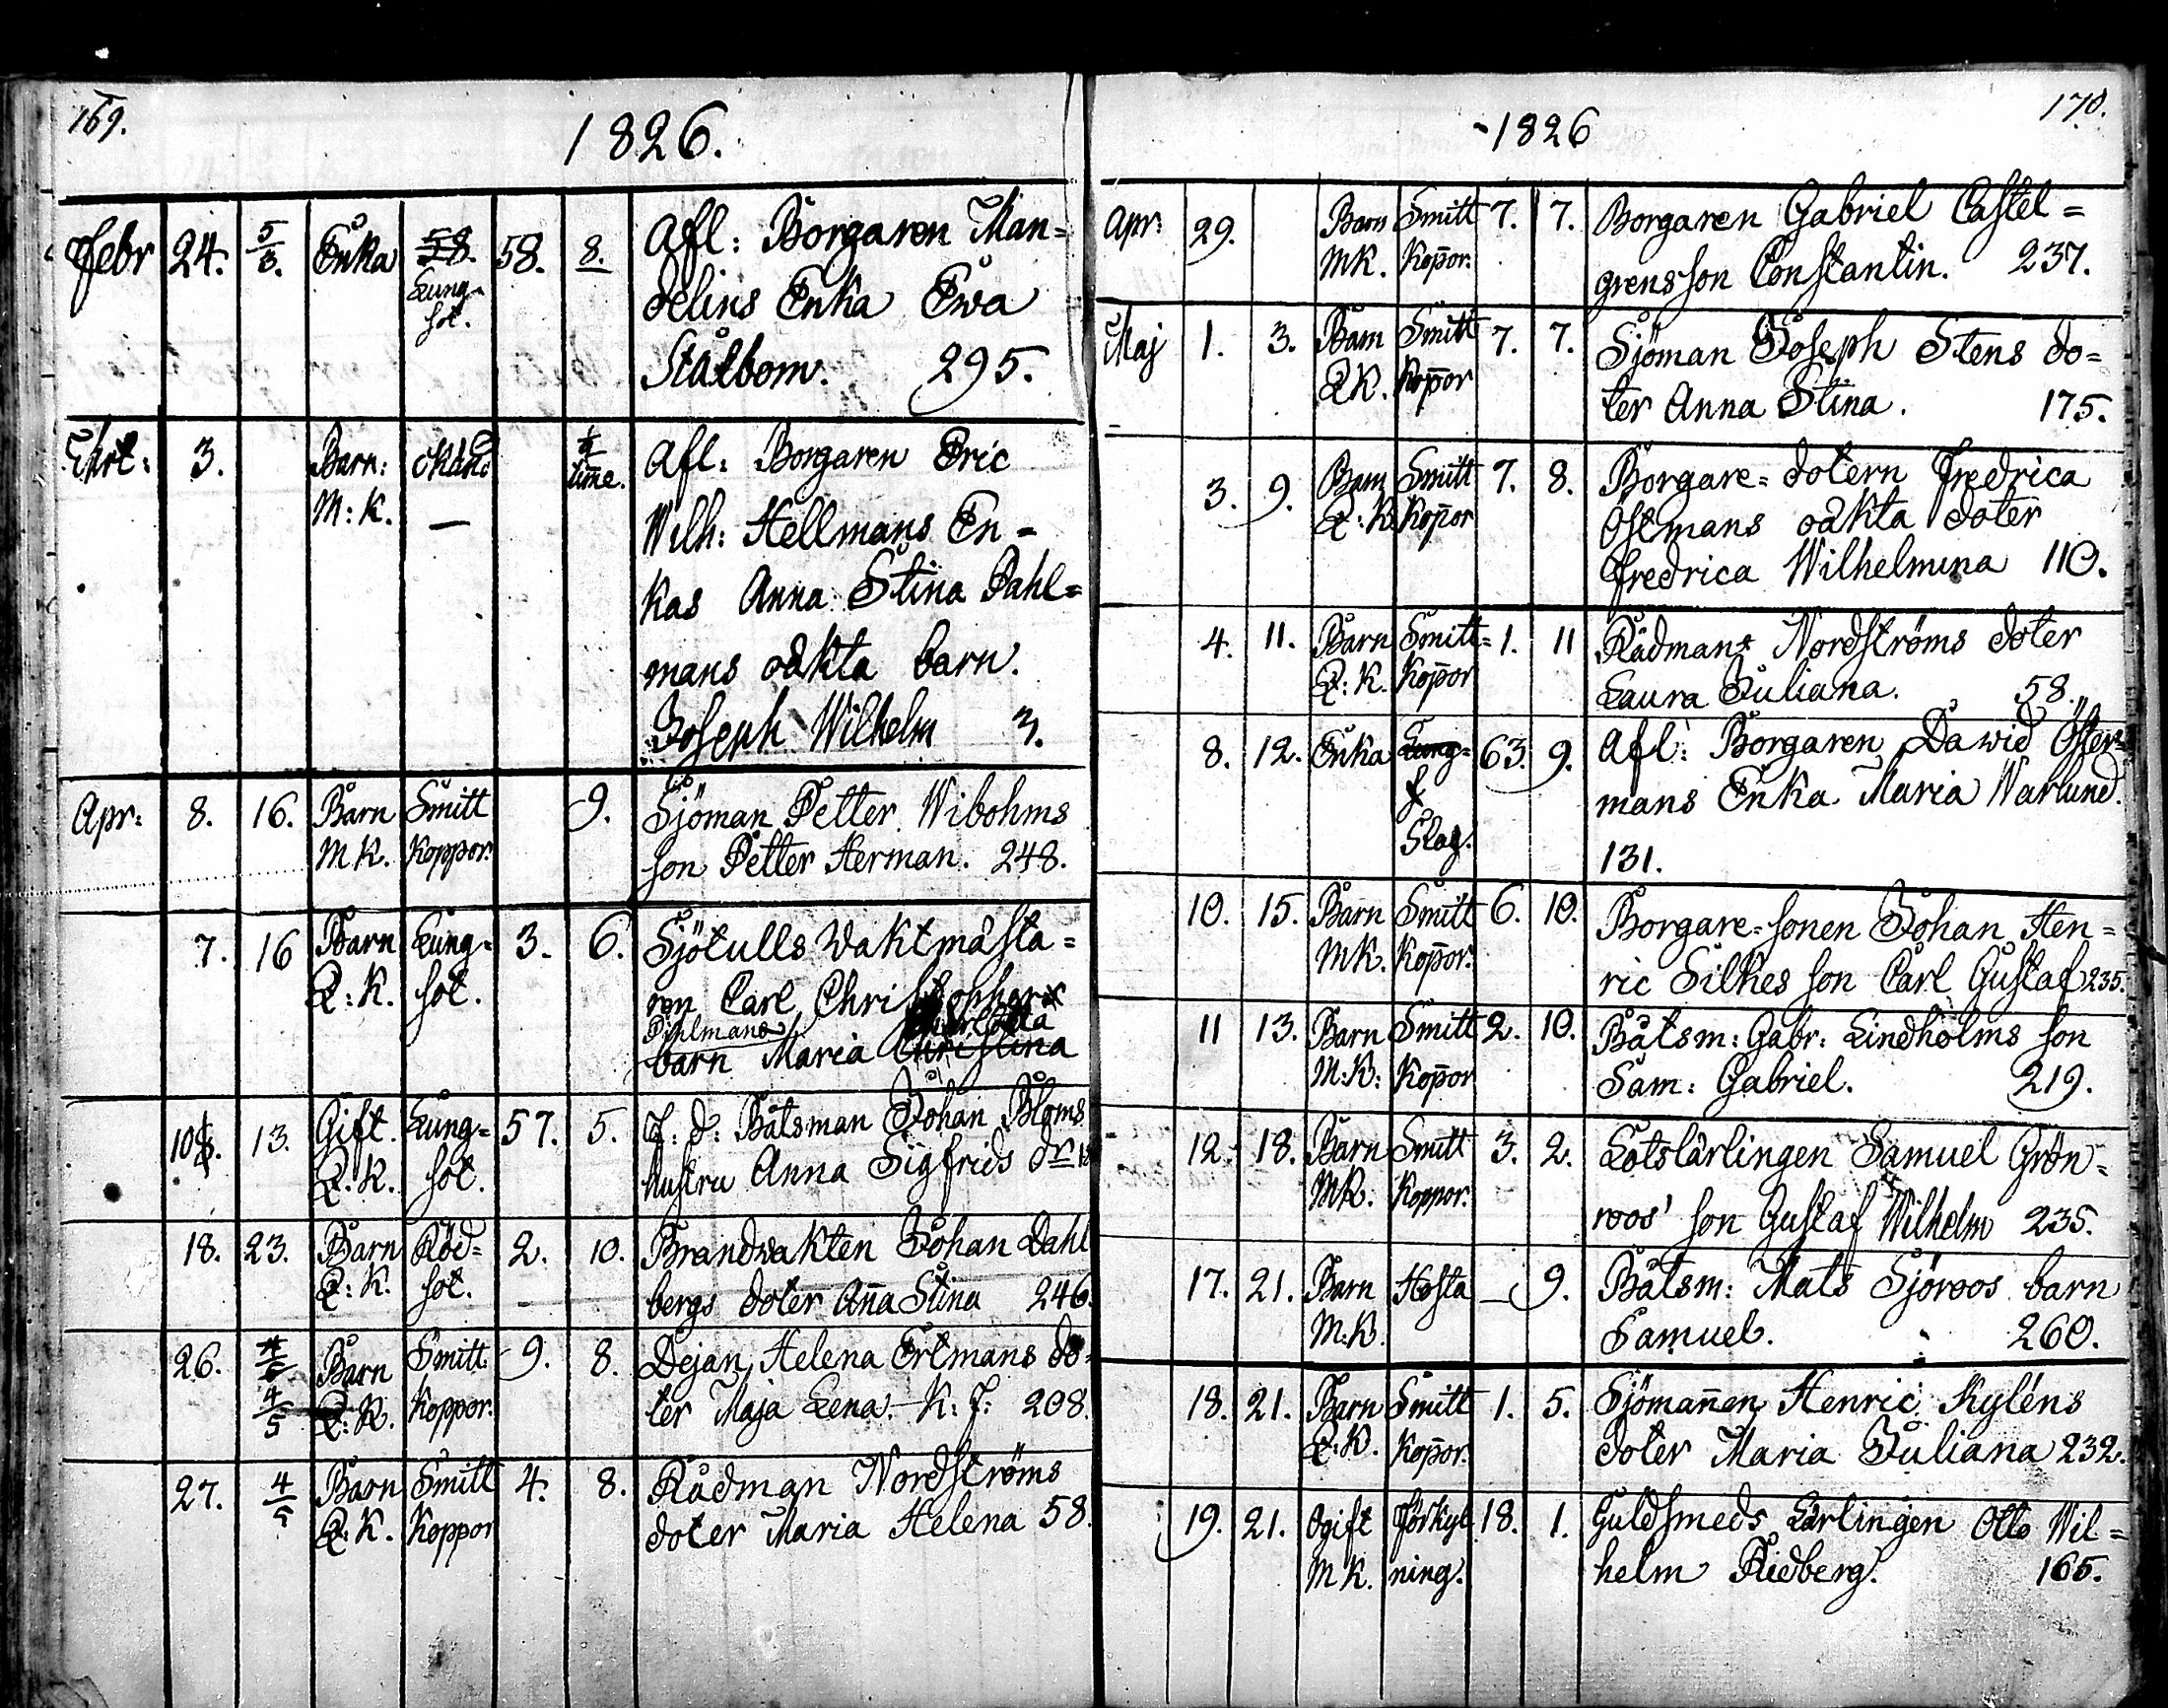 169.
1826.
Febr 24. 5/3. Enka 58. 58. 8. Afl: Borgaren Man=
Lung= delins Enka Ewa
sot. Stålbom. 295.
3. Barn: okänd 1/2 Afl: Borgaren Eric
M: K. — timme. Wilh: Hellmans En=
kas Anna Stina Dahl=
mans oäkta barn.
Joseph Wilhelm 3.
Apr: 8. 16. Barn Smitt 9. Sjöman Petter Wibohms
M K. Koppor. son Petter Herman. 248.
7. 16 Barn Lung= 3. 6. Sjötulls Vaktmästa=
Q: K. sot. ren Carl Christopher
Dihlmans Charlotta
barn Maria Christina
10. 13. Gift. Lung= 57. 5. F. d: Båtsman Johan Bloms
Q. K. sot. hustru Anna Sigfrids dr
18. 23. Barn Röd= 2. 10. Brandvakten Johan Dahl
Q: K. sot. bergs doter Anna Stina 246.
26. 4/5 Barn Smitt 9. 8. Dejan Helena Ertmans do=
4/5 Q: K. Koppor. ter Maja Lena. K. J: 208.
27. 4/5 Barn Smitt 4. 8. Rådman Nordströms
Q: K. Koppor doter Maria Helena 58.
170.
1826
Apr: 29. Barn Smitt 7. 7. Borgaren Gabriel Castel=
MK. Kopor. grens son Constantin. 237.
Maj 1. 3. Barn Smitt 7. 7. Sjöman Joseph Stens do=
QK. Kopor ter Anna Stina. 175.
3. 9. Barn Smitt 7. 8. Borgare=dotern Fredrica
Q: K Kopor Östmans oäkta doter
Fredrica Wilhelmina 110.
4. 11. Barn Smitt= 1. 11 Rådmans Nordströms doter
Q: K. Kopor Laura Juliana. 58.
8. 12. Enka Lung= 63. 9. Afl: Borgaren David Öster=
mans Enka Maria Warlund.
Slag. 131.
10. 15. Barn Smitt 6. 10. Borgare=sonen Johan Hen=
MK. Kopor. ric Silkes son Carl Gustaf 235.
11 13. Barn Smitt 2. 10. Båtsm: Gabr: Lindholms son
M:K: Kopor Sam: Gabriel. 219.
12. 18. Barn Smitt 3. 2. Lotslärlingen Samuel Grön=
MK. Koppor. roos' son Gustaf Wilhelm 235.
17. 21. Barn Hosta — 9. Båtsm: Mats Sjöroos barn
M:K. Samuel. 260.
18. 21. Barn Smitt 1. 5. Sjömannen Henric Kyléns
Q: K. Kopor. doter Maria Juliana 232.
19. 21. Ogift Förkyl 18. 1. Guldsmeds Lärlingen Otto Wil=
M K. ning. helm Ridberg. 165.